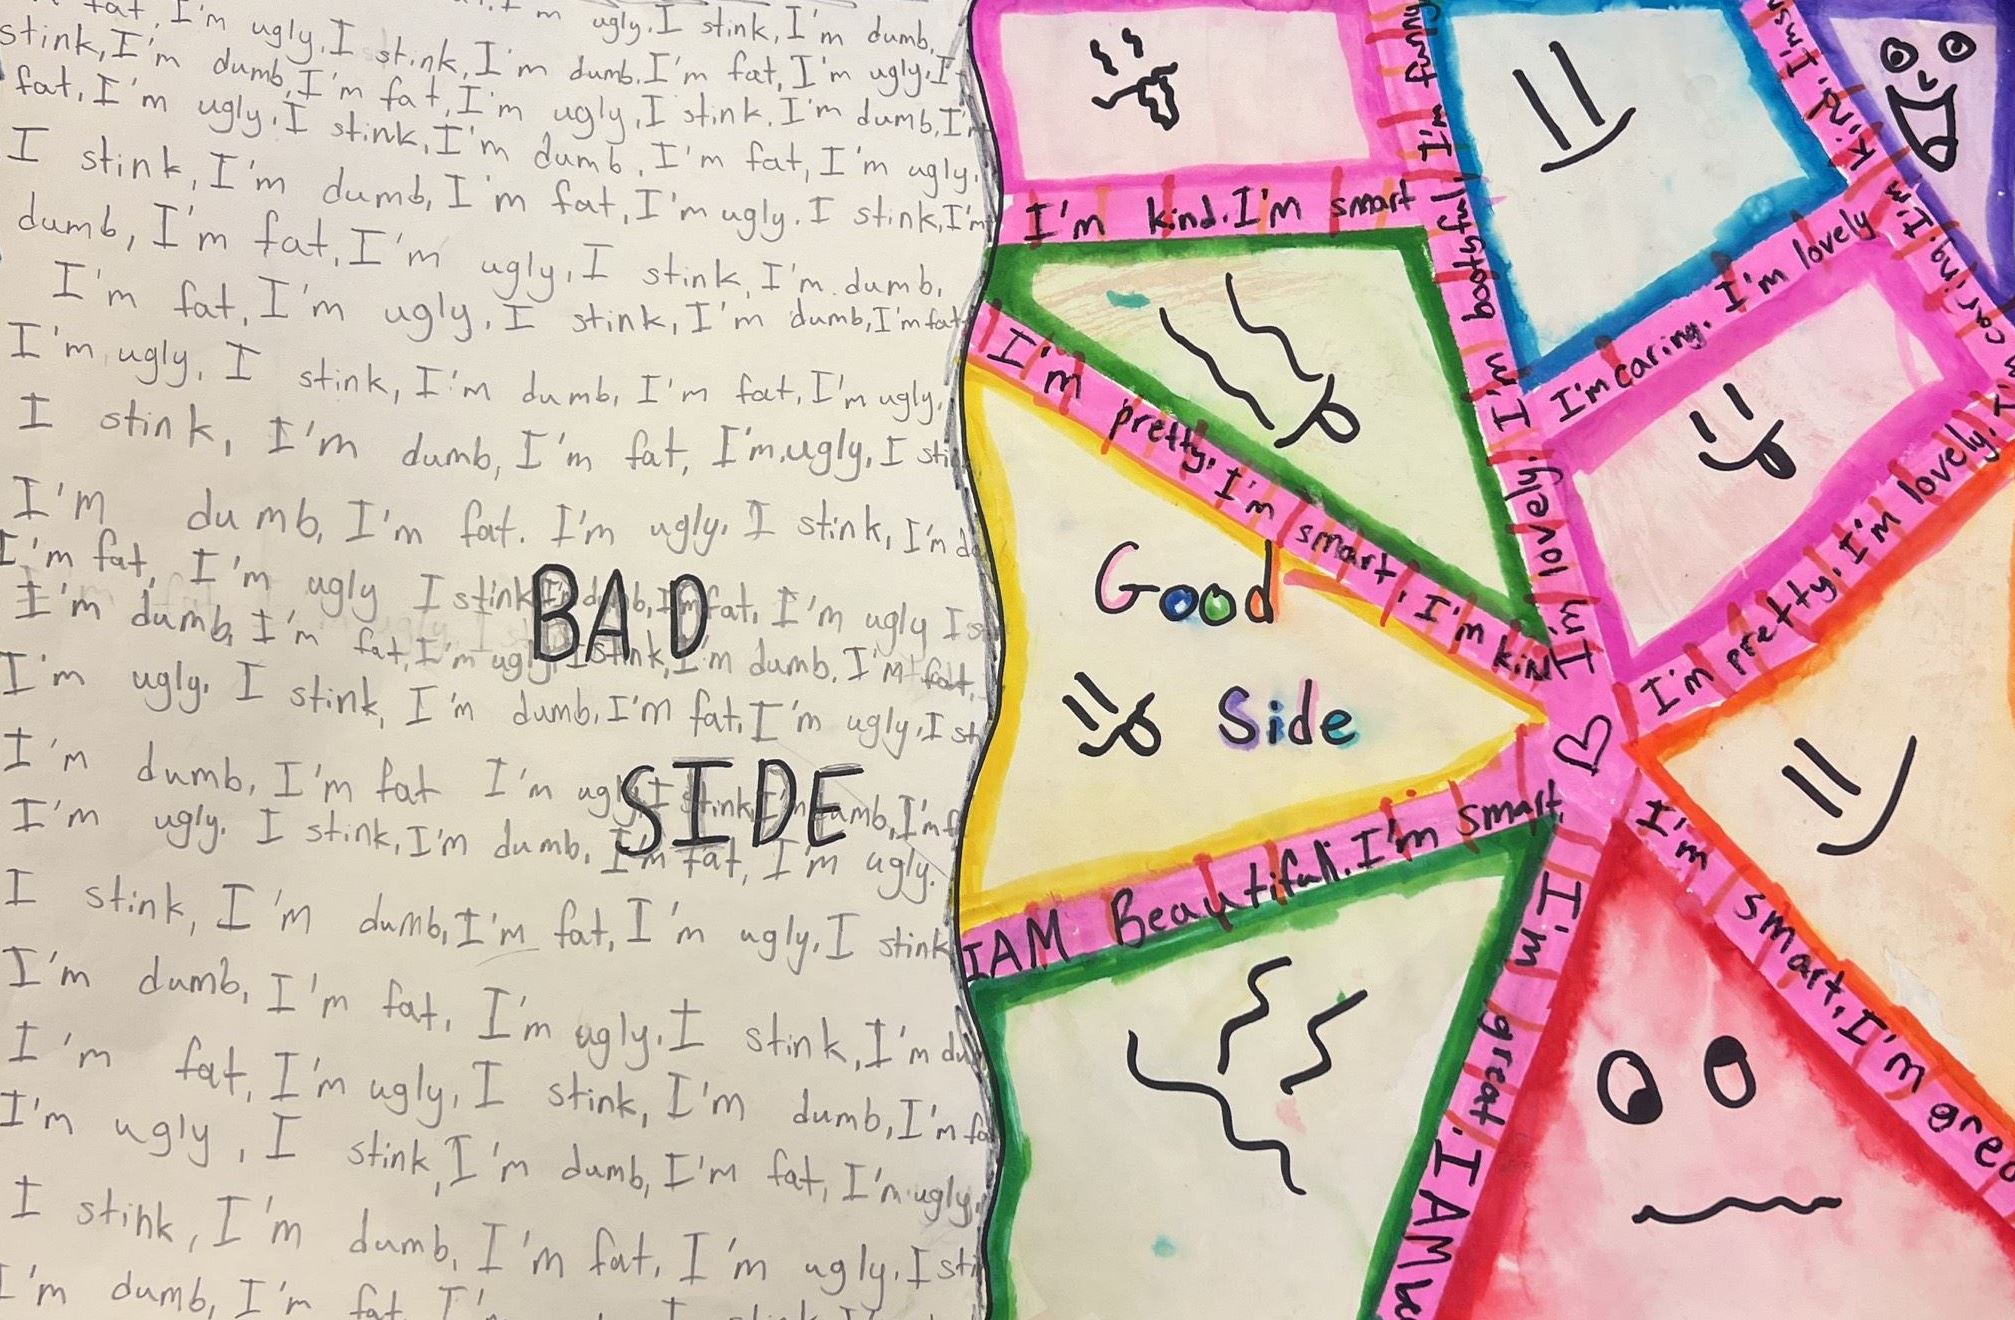 fat, I'm ugly, I stink, I'm dumb, I'm fat, I'm ugly, I
ugly. I stink, I'm dumb,
stink, I'm dumb, I'm fat, I'm ugly, I stink, I'm dumb, I'm
fat, I'm ugly, I stink, I'm dumb, I'm fat, I'm ugly.
I stink, I'm dumb, I'm fat, I'm ugly. I stink, I'm
dumb, I'm fat, I'm ugly, I stink, I'm dumb,
I'm fat, I'm ugly, I stink, I'm dumb, I'm fat
I'm ugly, I stink, I'm dumb, I'm fat, I'm ugly,
I stink, I'm dumb, I'm fat, I'm ugly, I
I'm dumb, I'm fat. I'm ugly. I stink, I'm
I'm fat, I'm ugly I stink I'm dumb, I'm fat, I'm ugly I
I'm dumb, I'm fat, I'm ugly, I stink, I'm dumb, I'm fat,
I'm ugly. I stink, I'm dumb, I'm fat, I'm ugly, I
I'm dumb, I'm fat I'm ugly I stink, I'm dumb, I'm
I'm ugly. I stink, I'm dumb, I'm fat, I'm ugly.
I stink, I'm dumb, I'm fat, I'm ugly, I stink
I'm dumb, I'm fat, I'm ugly. I stink, I'm
I'm fat, I'm ugly, I stink, I'm dumb, I'm
I'm ugly, I stink, I'm dumb, I'm fat, I'm ugly,
I stink, I'm dumb, I'm fat, I'm ugly, I
I'm dumb, I'm fat
BAD
SIDE
I'm kind. I'm smart
I'm funny
I'm lovely. I'm
I'm caring. I'm lovely
kind. I'm
I'm caring. I'm
I'm pretty. I'm smart. I'm
Good
Side
I'm pretty. I'm lovely.
IAM Beautifull. I'm smart.
I'm great. I AM
I'm smart, I'm